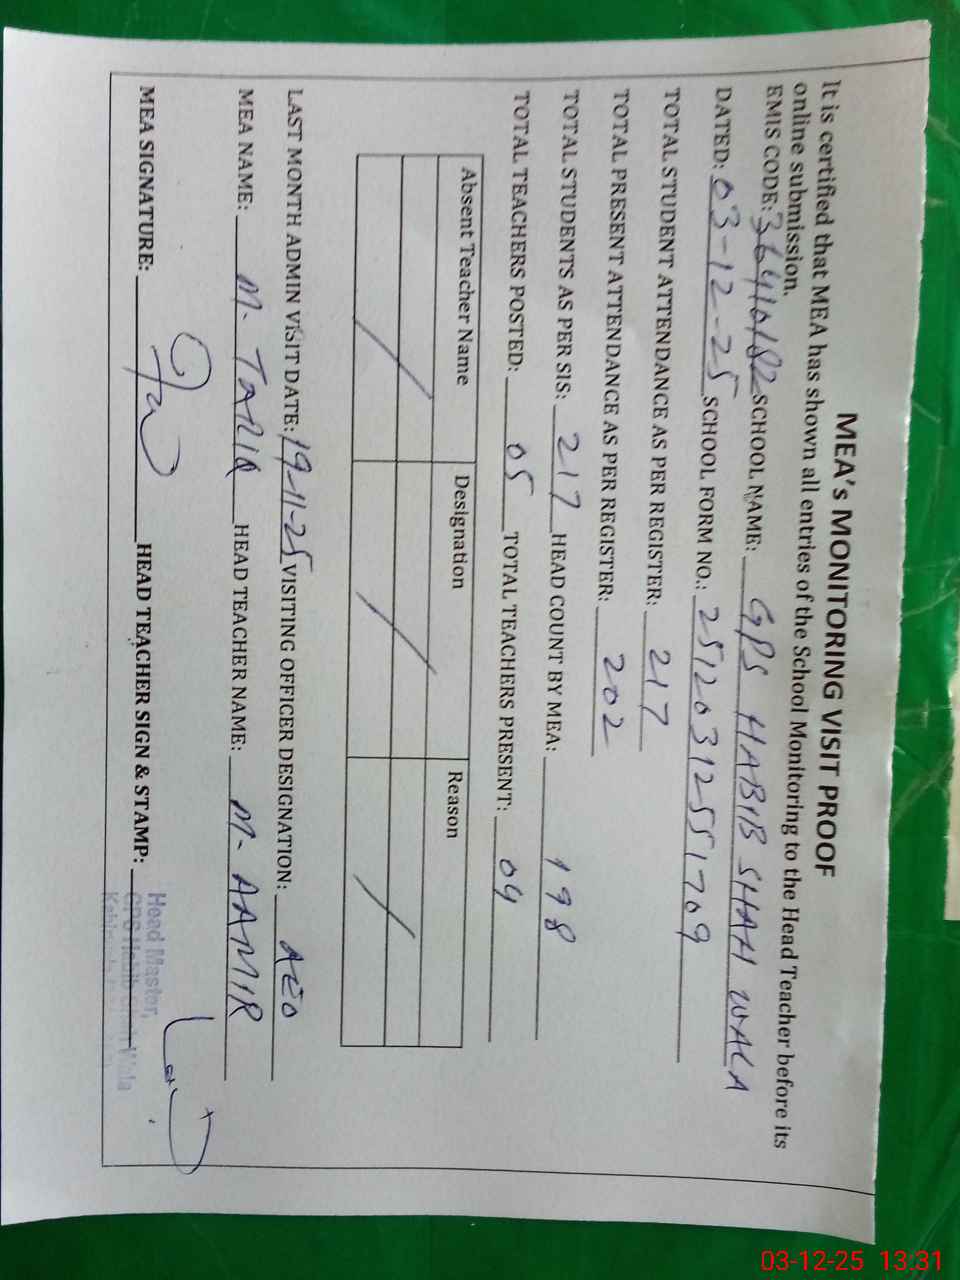 MEA's MONITORING VISIT PROOF
It is certified that MEA has shown all entries of the School Monitoring to the Head Teacher before its
online submission.
EMIS CODE: 36410182 SCHOOL NAME: GPS HABIB SHAH WALA
DATED: 03-12-25 SCHOOL FORM NO.: 25120312551709
TOTAL STUDENT ATTENDANCE AS PER REGISTER: 217
TOTAL PRESENT ATTENDANCE AS PER REGISTER: 202
TOTAL STUDENTS AS PER SIS: 217 HEAD COUNT BY MEA: 198
TOTAL TEACHERS POSTED: 05 TOTAL TEACHERS PRESENT: 04
Absent Teacher Name Designation Reason
/ / /
LAST MONTH ADMIN VISIT DATE: 19-11-25 VISITING OFFICER DESIGNATION: AEO
MEA NAME: M- TARIQ HEAD TEACHER NAME: M- AAMIR
MEA SIGNATURE: HEAD TEACHER SIGN & STAMP:
Head Master,
GPS Habib Shah Wala
03-12-25 13:31